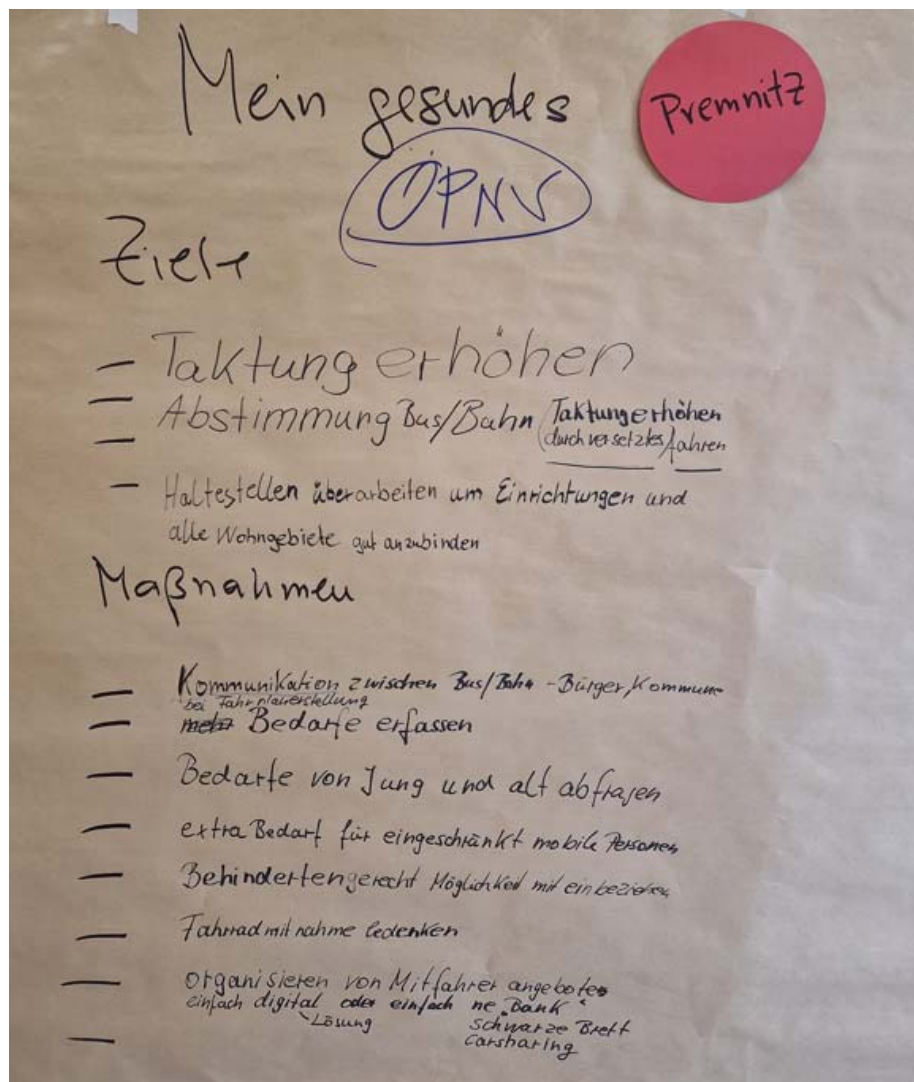 Mein gesundes
Premnitz
ÖPNV
Ziele
- Taktung erhöhen
- Abstimmung Bus/Bahn (Taktung erhöhen
- durch versetztes fahren
- Haltestellen überarbeiten um Einrichtungen und
alle Wohngebiete gut anzubinden
Maßnahmen
- Kommunikation zwischen Bus/Bahn - Bürger, Kommune
bei Fahrplanerstellung
- mehr Bedarfe erfassen
- Bedarfe von Jung und alt abfragen
- extra Bedarf für eingeschränkt mobile Personen
- Behindertengerecht Möglichkeit mit einbeziehen
- Fahrrad mit nahme bedenken
- organisieren von Mitfahrer angebote
einfach digital oder einfach ne "Bank"
Lösung schwarze Brett
- carsharing